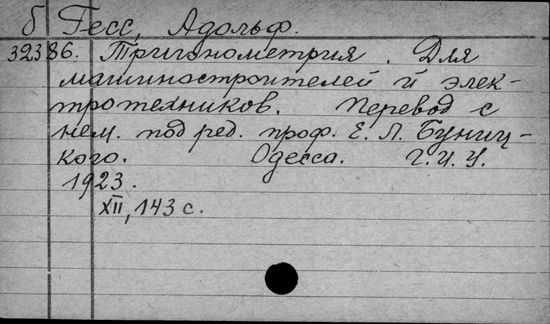 б Гесс, Адольф.
32386. Тригонометрия. Для
машиностроителей и элек-
тротехников. Перевод с
нем. под ред. проф. Е. Л. Буниц-
кого. Одесса. Г.И.У.
1923.
XII, 143 с.